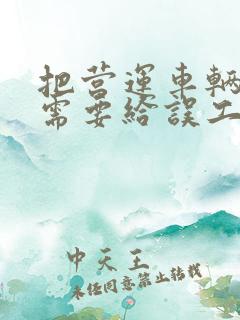 把营运車輛
需要給誤工
中天王
未经同意禁止转载